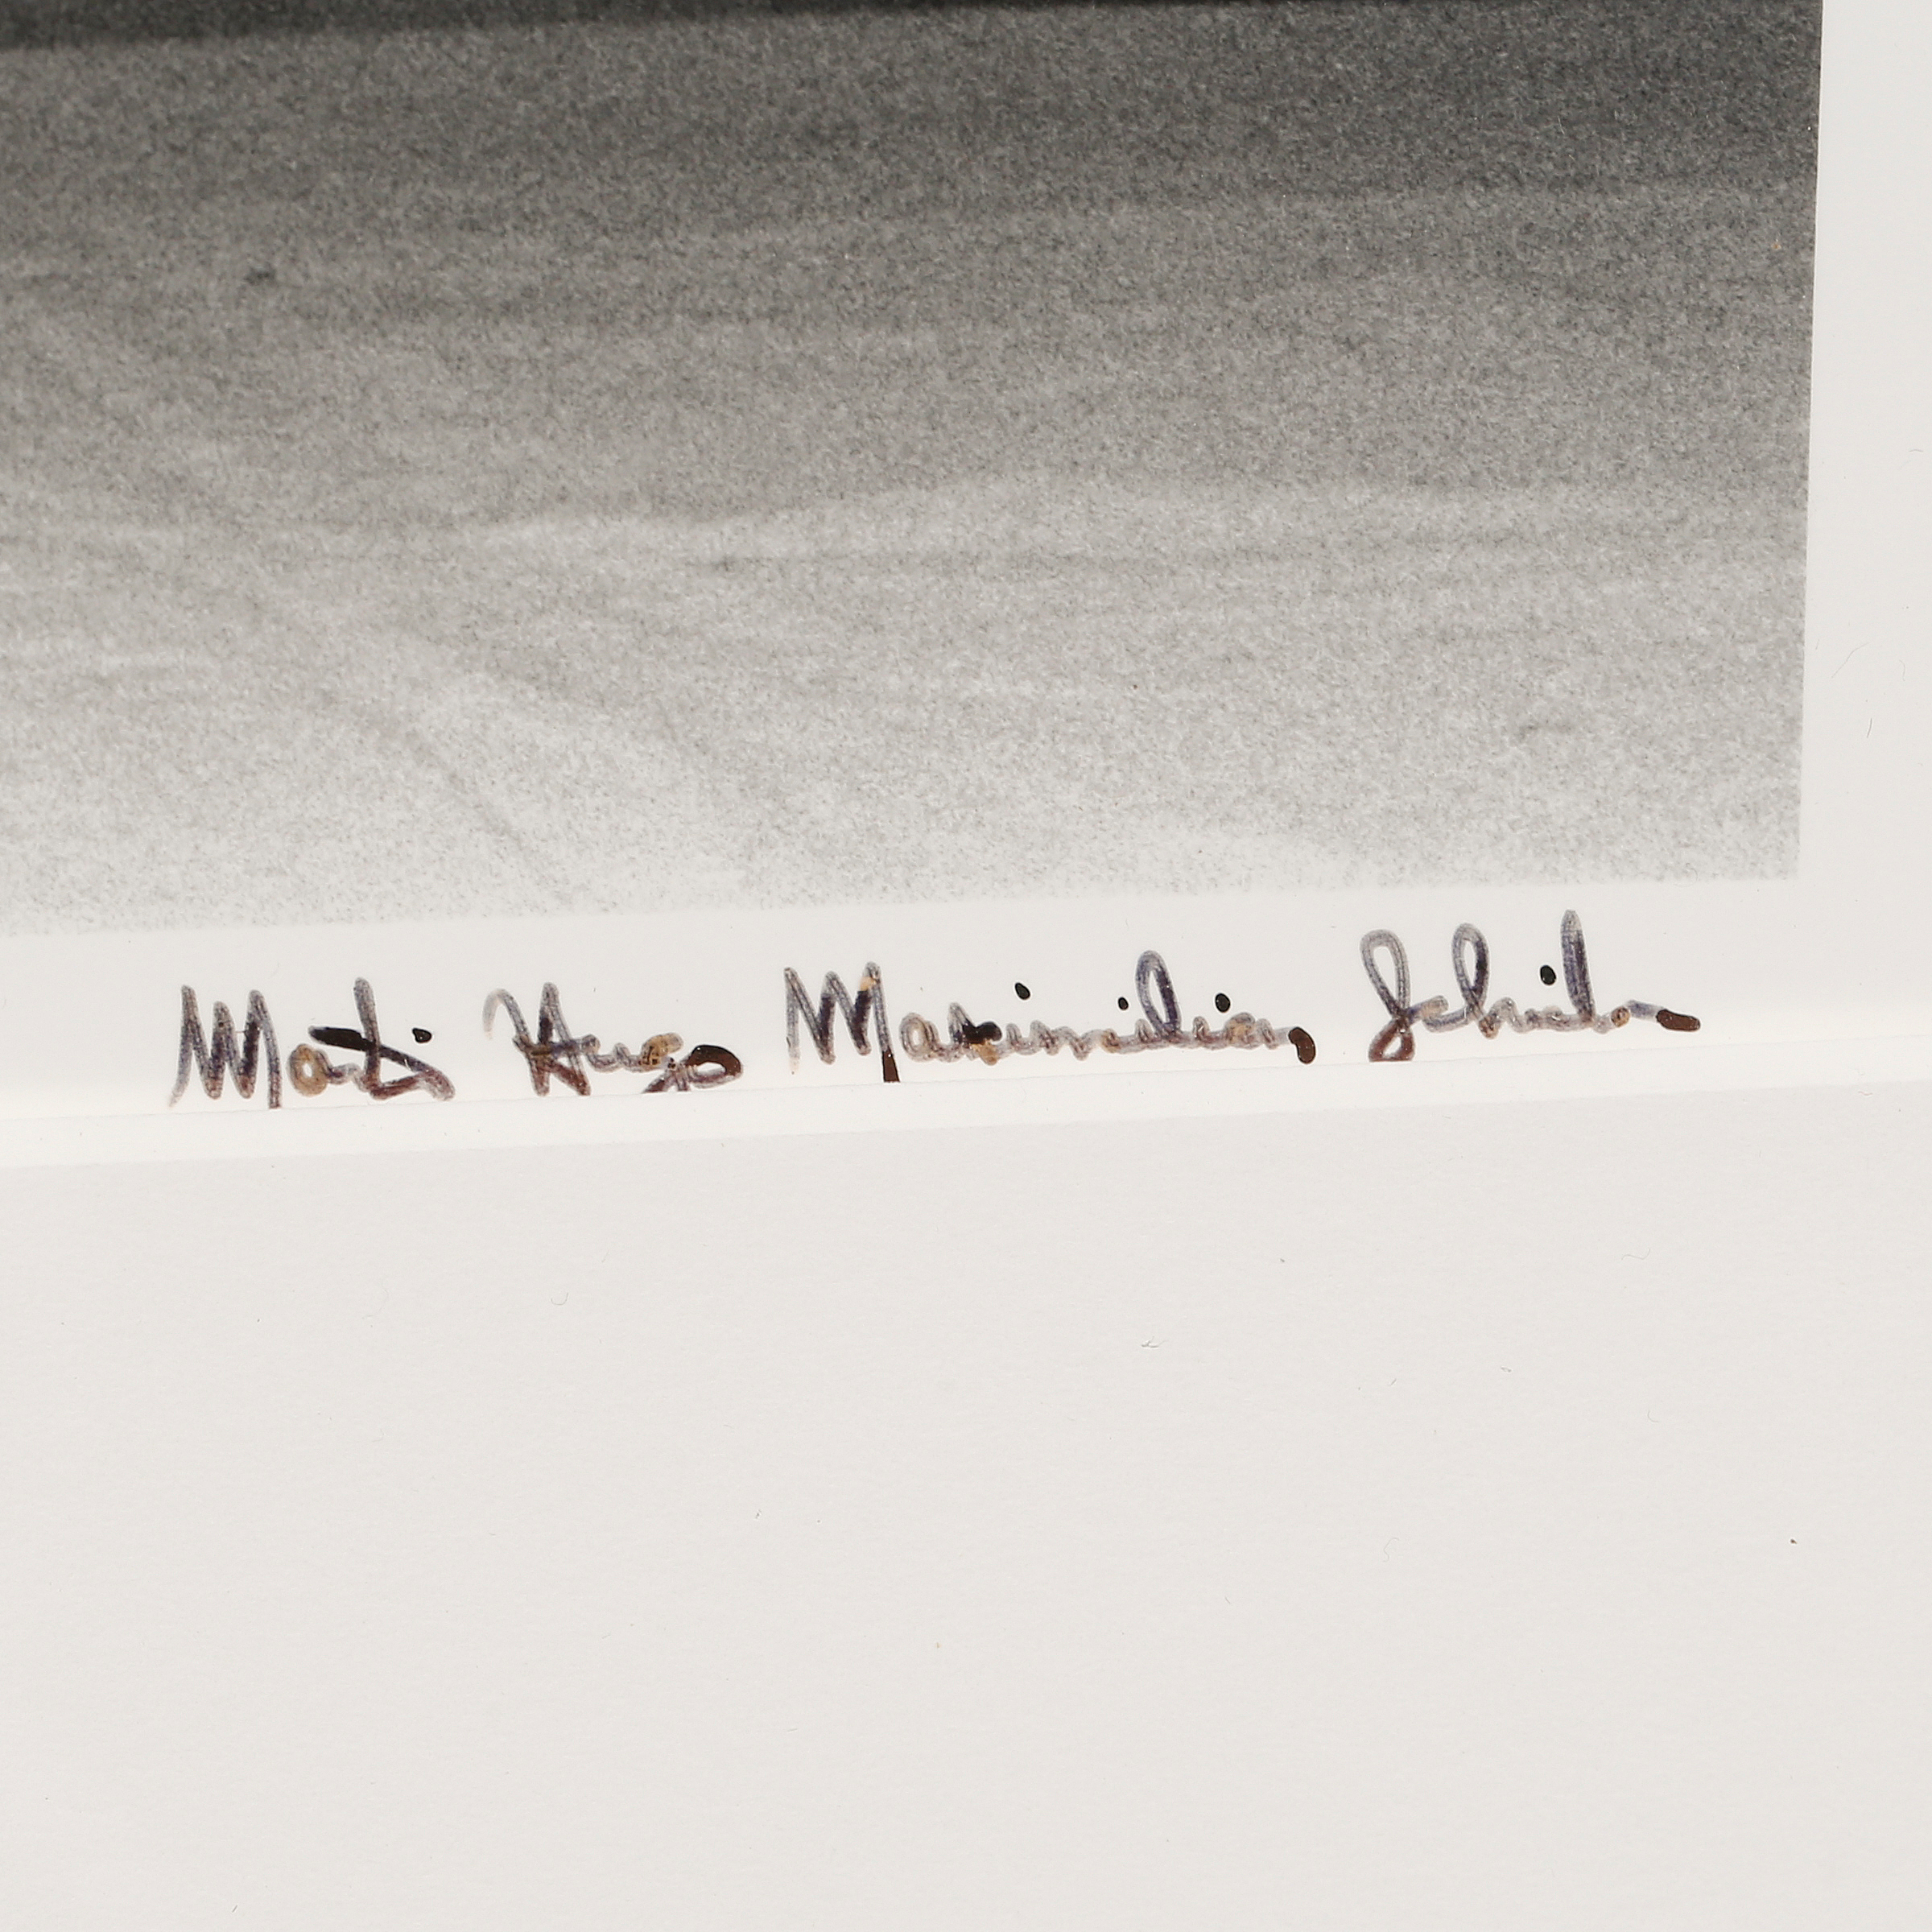 Martin Hugo Maximilian Schreiber